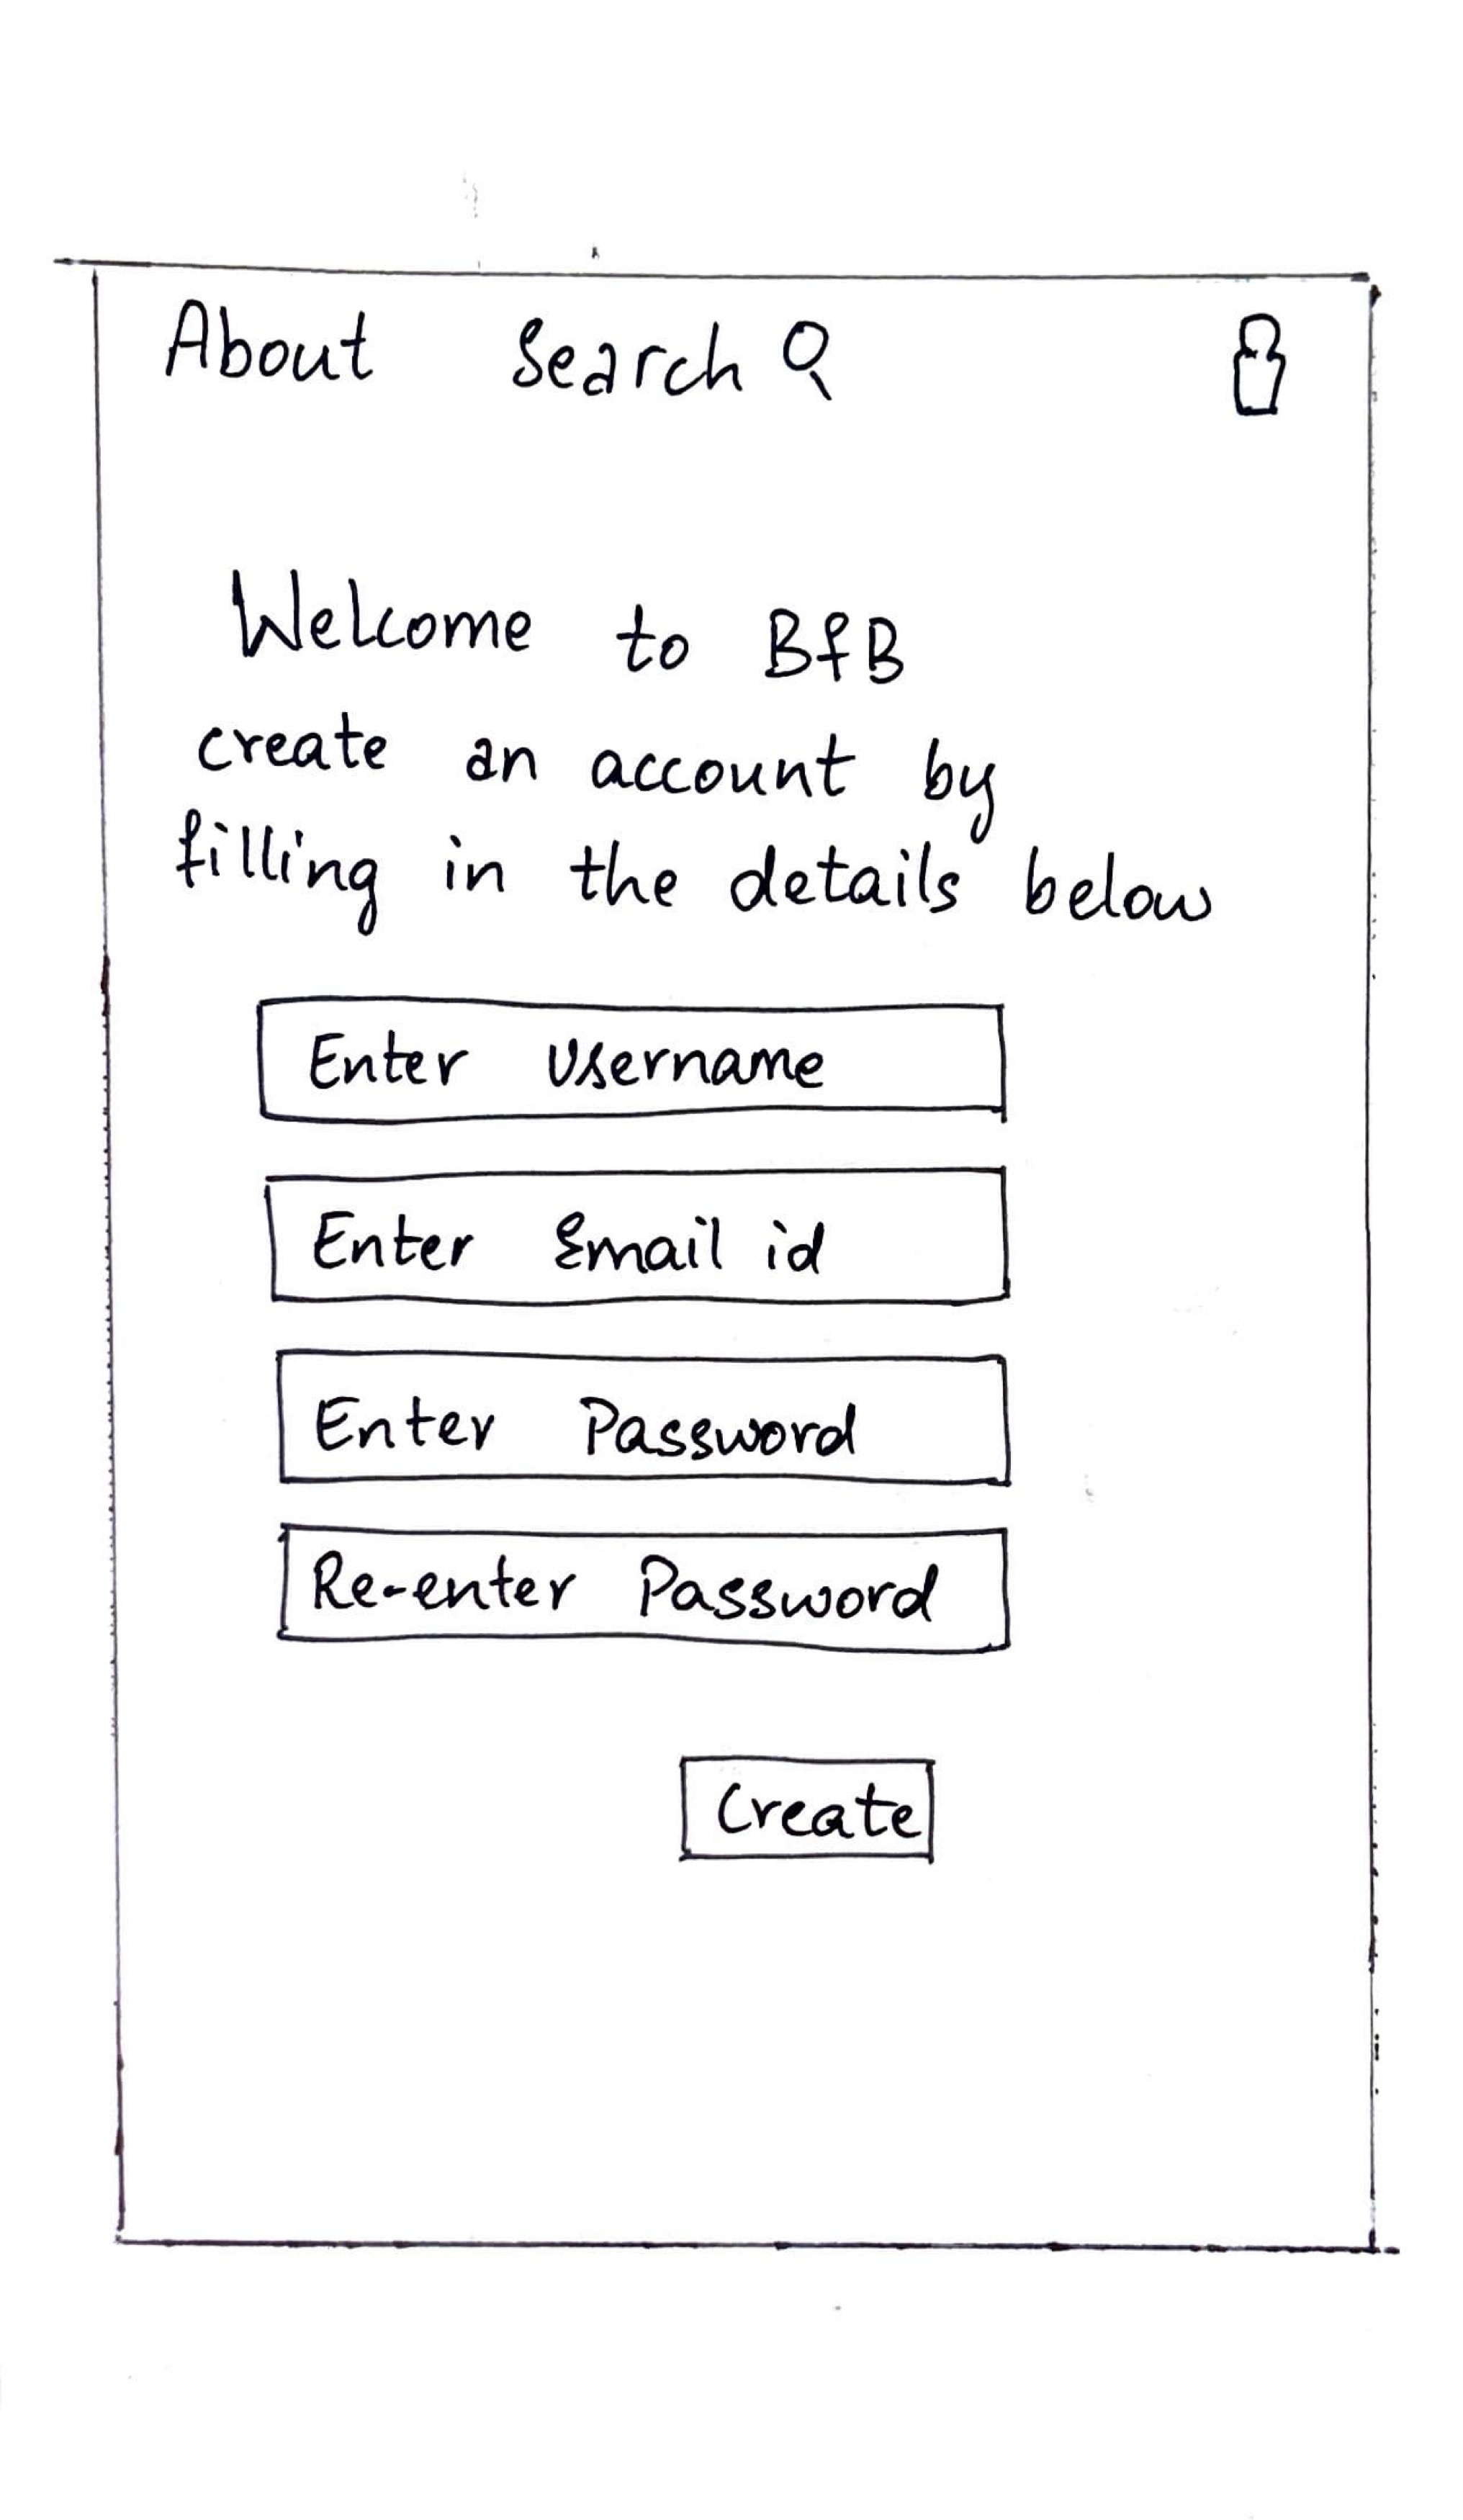 About Search
Welcome to BfB
create an account by
filling in the details below
Enter Username
Enter Email id
Enter Password
Re-enter Password
Create